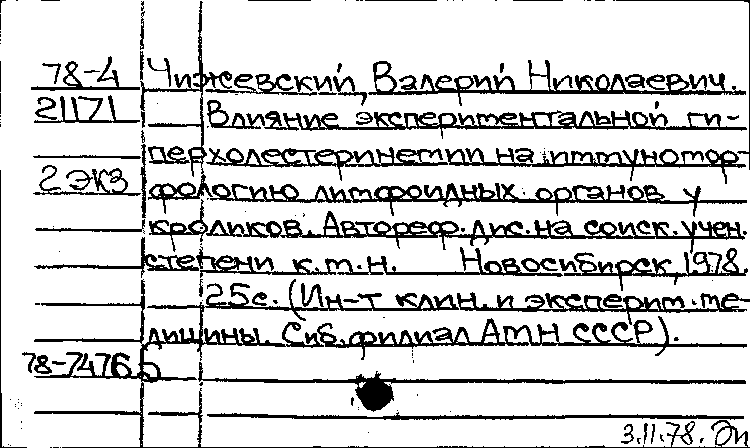 78-4 Чижевский, Валерий Николаевич.
21171 Влияние экспериментальной ги-
перхолестеринемии на иммуномор-
2 экз фологию лимфоидных органов у
кроликов. Автореф. дис. на соиск. учен.
степени к.м.н. Новосибирск, 1978.
25с. (Ин-т клин. и эксперим. ме-
дицины. Сиб. филиал АМН СССР).
78-7476
3.11.78.